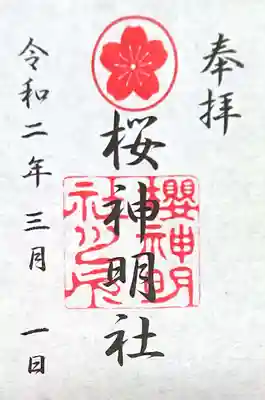 奉拝
桜神明社
櫻神明社之印
令和二年三月一日